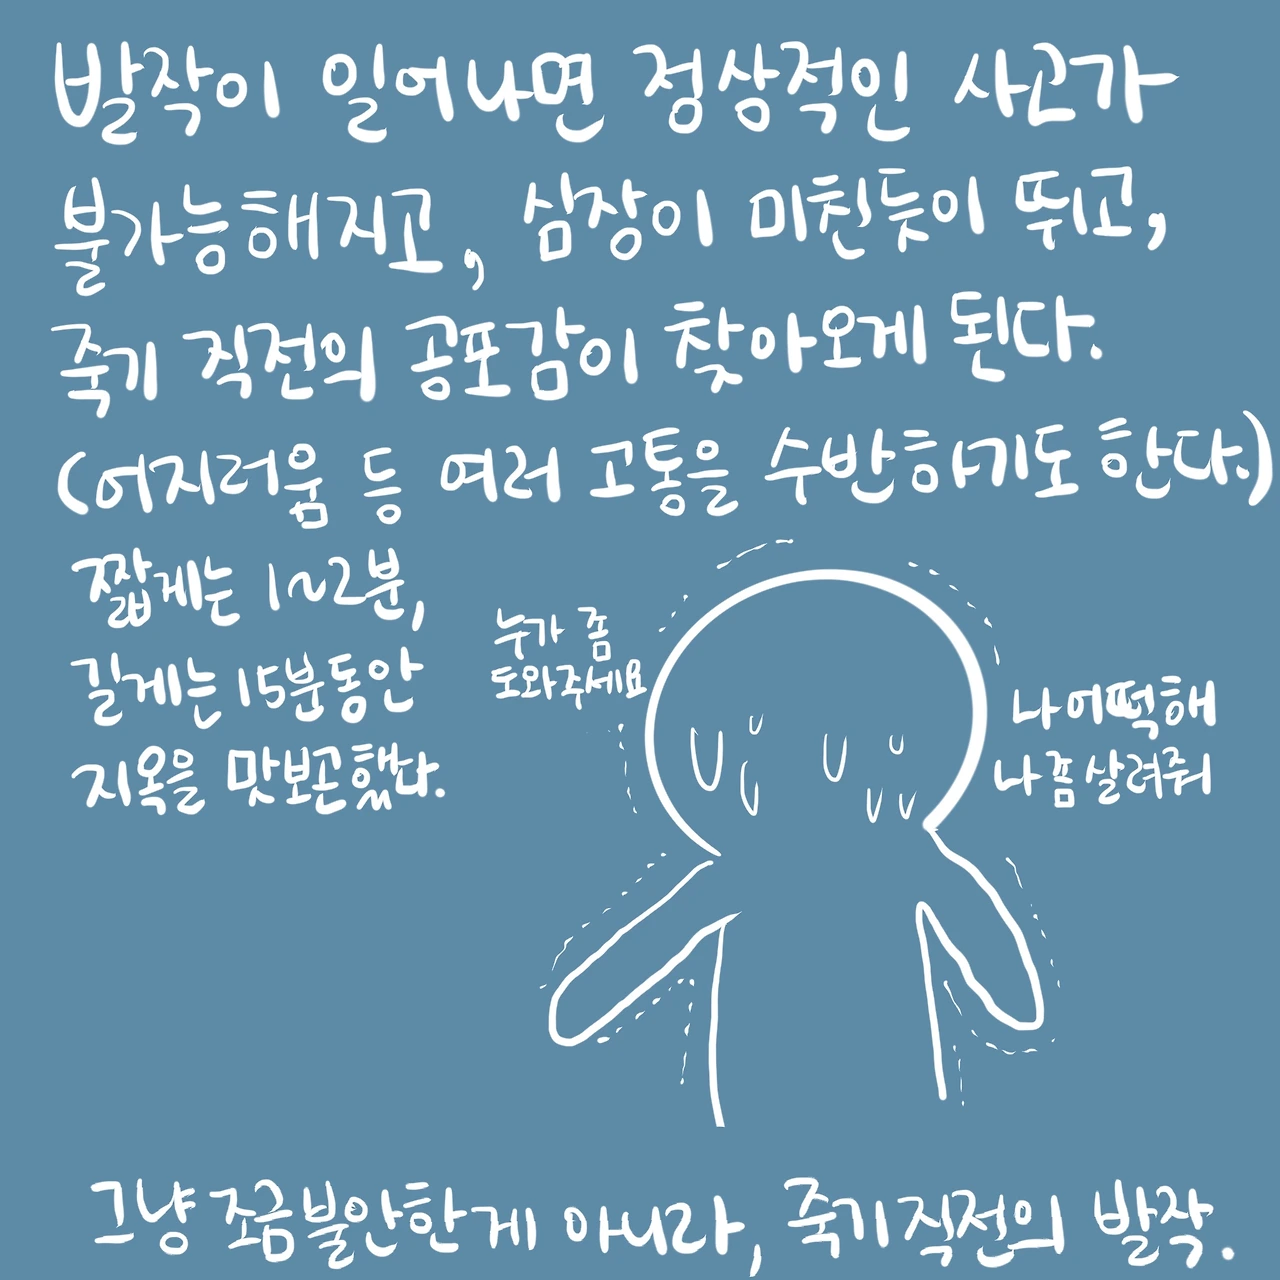 발작이 일어나면 정상적인 사고가
불가능해지고, 심장이 미친듯이 뛰고,
죽기 직전의 공포감이 찾아오게 된다.
(어지러움 등 여러 고통을 수반하기도 한다.)
짧게는 1~2분,
길게는 15분동안
지옥을 맛보곤했다.
누가 좀
도와주세요
나 어떡해
나 좀 살려줘
그냥 조금불안한게 아니라, 죽기직전의 발작.